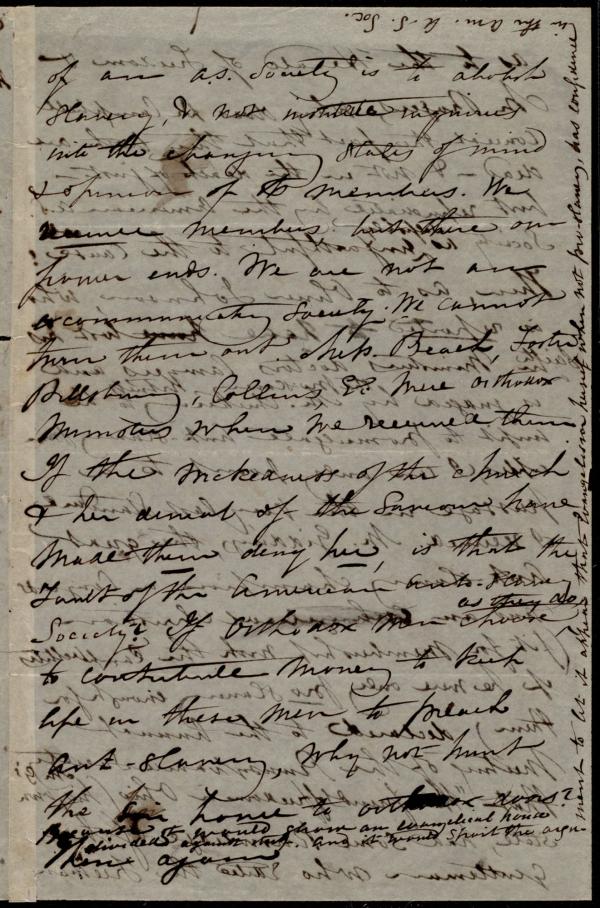 of an a.s. Society is to abolish
Slavery, & not institute inquiries
into the changing states of mind
& opinion of its members. We
receive members, but there our
power ends. We are not an
excommunicating Society. We cannot
turn them out. Messrs. Beach, Foster
Pillsbury, Collins &c were orthodox
Ministers when we received them
If the wickedness of the church
& her denial of the Saviour have
made them deny her, is that the
fault of the American Anti-Slavery
Society? If Orthodox men choose, as they do,
to contribute money to keep
life in these men to preach
Anti-slavery, why not hunt
the home to orthodox doors?
Because it would show an evangelical house
divided against itself. And it would spoil the argu-
ment to let it appear that Evangelism herself when not pro-slavery, has confidence
in the Am. A. S. Soc.
Here again